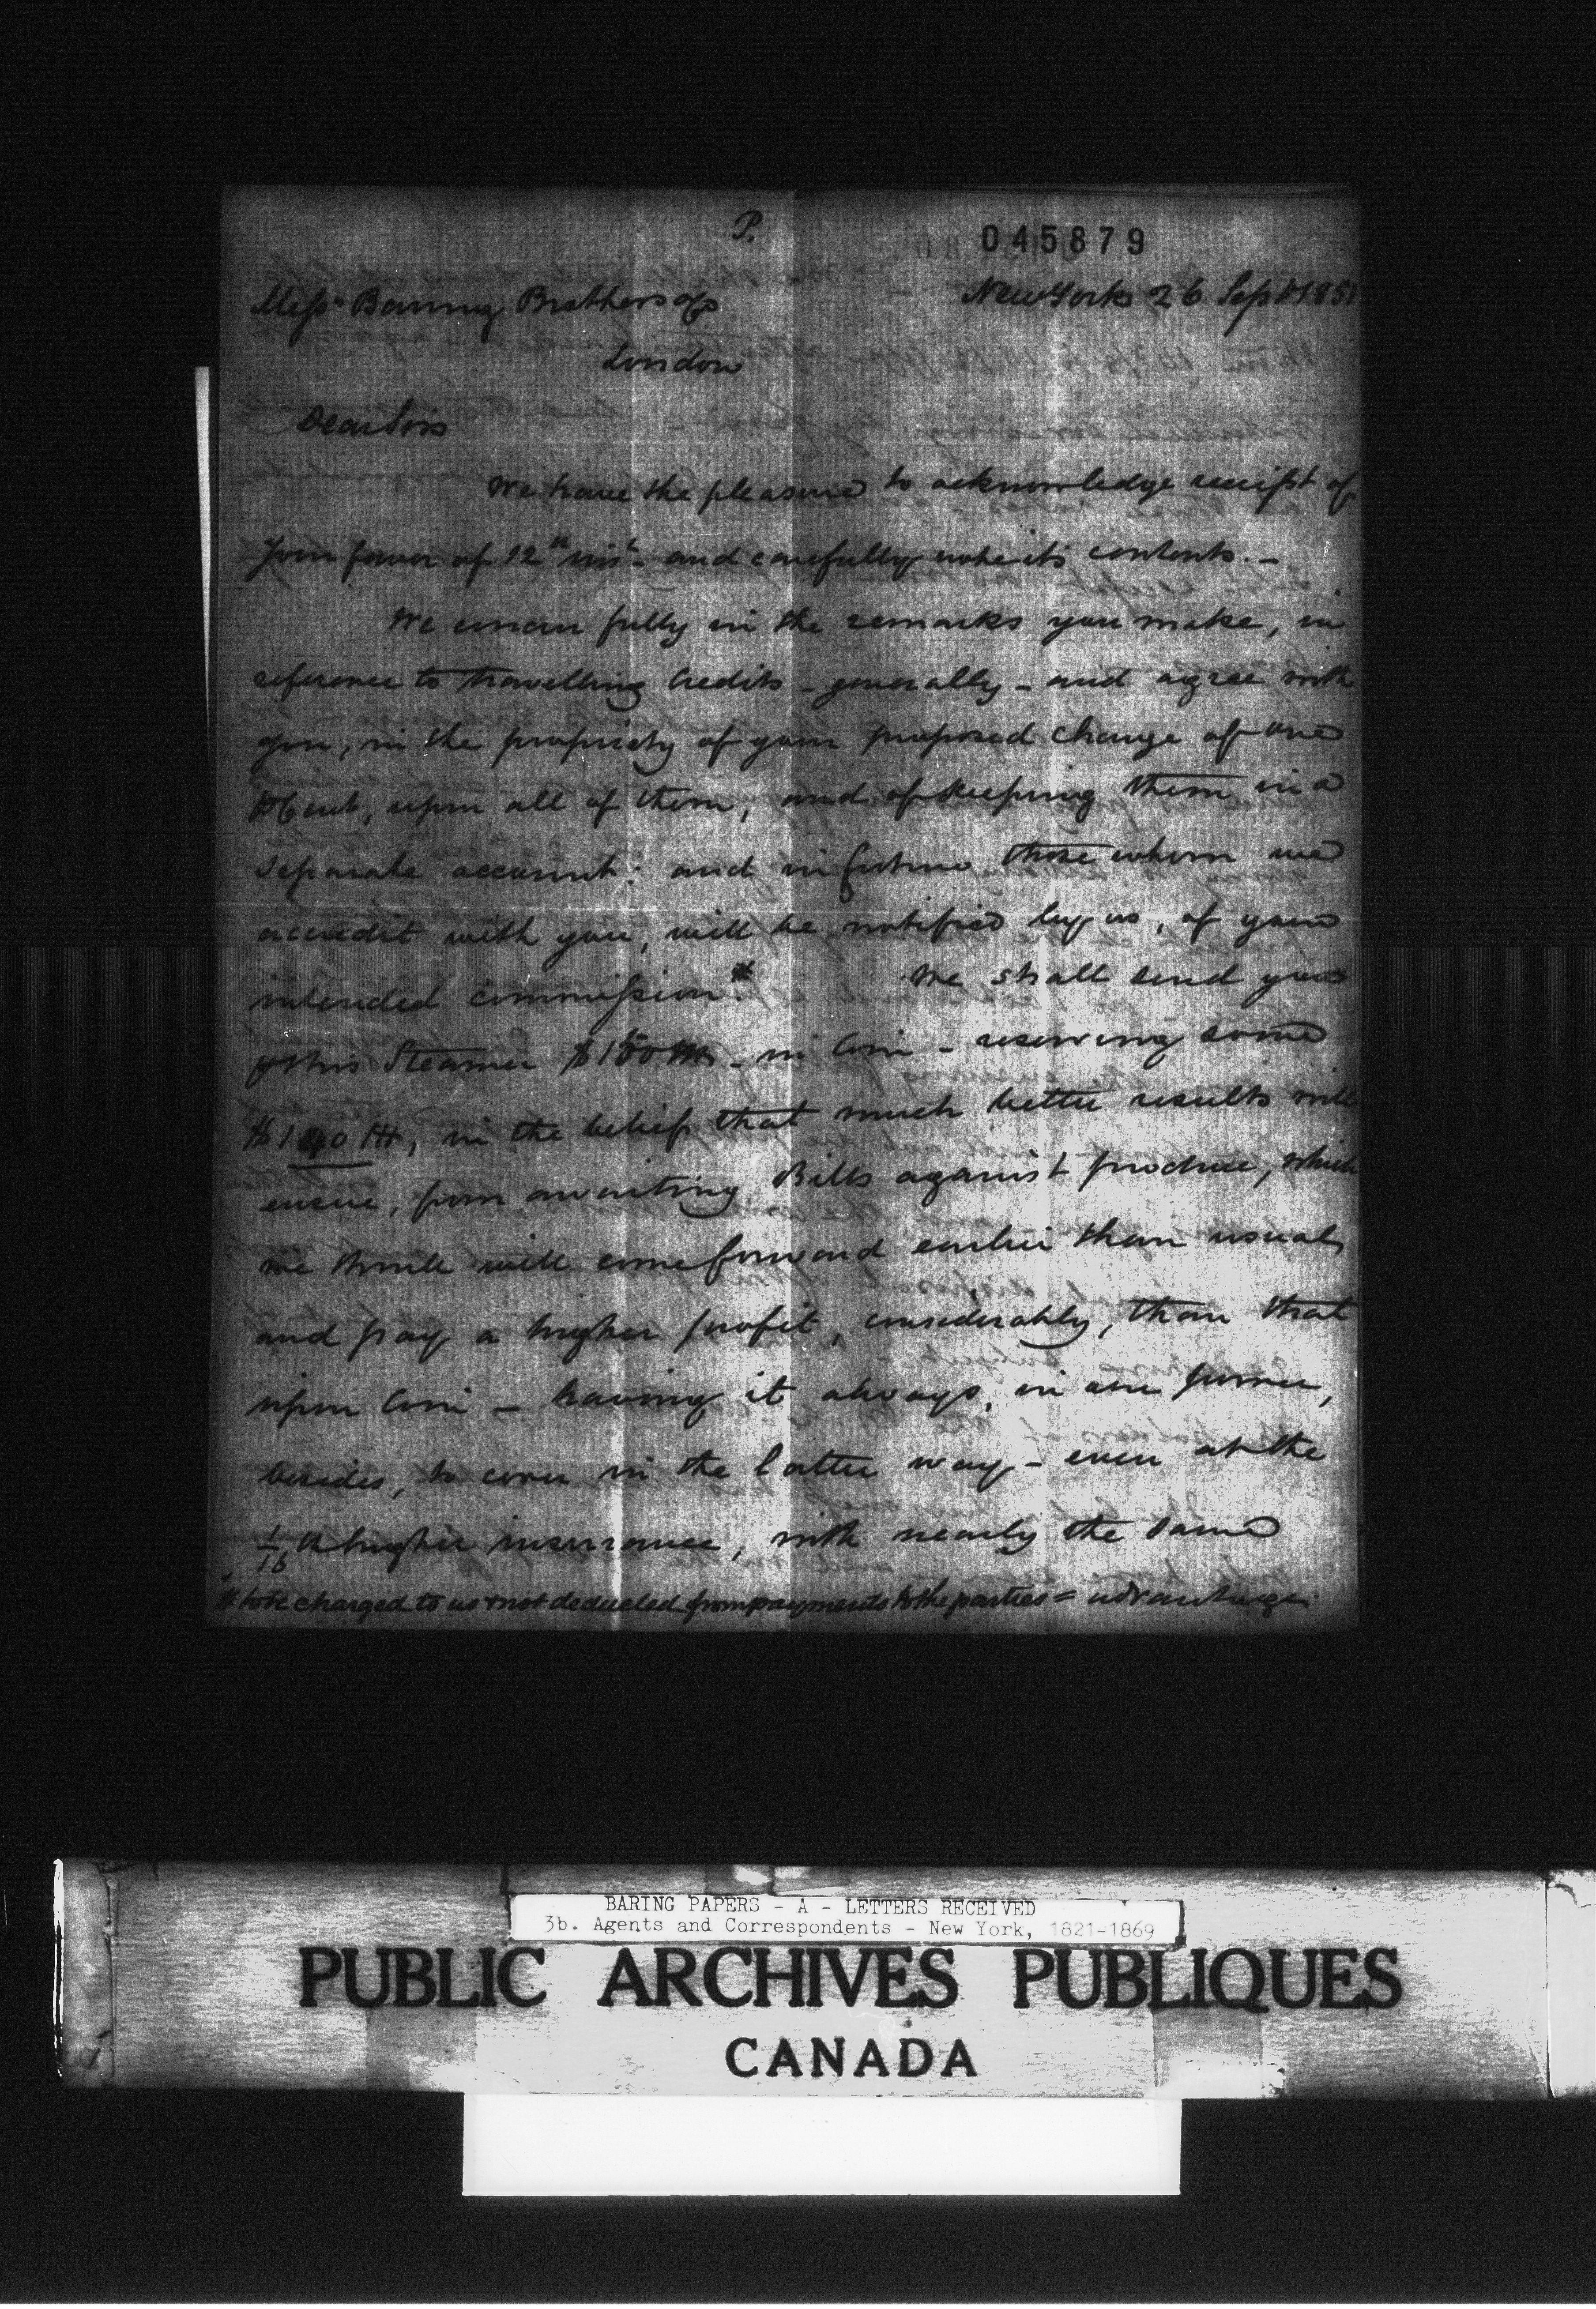 P.
045879
New York 26 Sept 1851
Messrs Baring Brothers & Co
London
Dear Sirs
We have the pleasure to acknowledge receipt of
your favor of 12th inst - and carefully note its contents. -
We concur fully in the remarks you make, in
reference to travelling Credits - generally - and agree with
you, in the propriety of your proposed charge of one
P Cent, upon all of them, and of keeping them in a
separate account: and in future those whom we
accredit with you, will be notified by us, of your
intended commission.* We shall send you
p this Steamer $150 M - in Coin - reserving some
$100 M, in the belief that much better results will
ensue, from awaiting Bills against produce, which
we think will come forward earlier than usual,
and pay a higher profit, considerably, than that
upon Coin - having it always, in our power,
besides, to cover in the latter way - even at the
1/16 higher insurance, with nearly the same
* to be charged to us & not deducted from payments to the parties = advantage.
BARING PAPERS - A - LETTERS RECEIVED
3b. Agents and Correspondents - New York, 1821-1869
PUBLIC ARCHIVES PUBLIQUES
CANADA